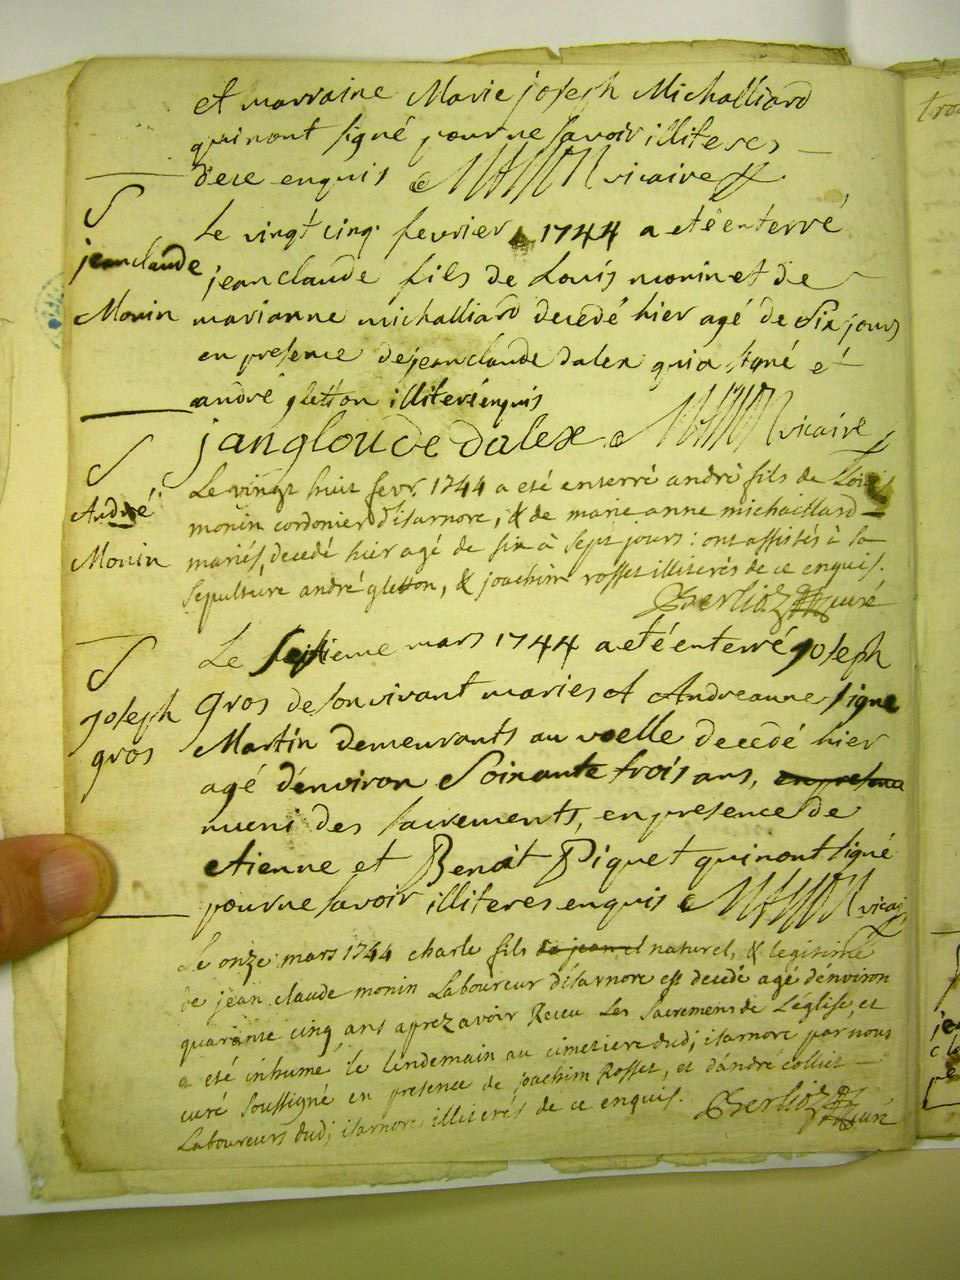 et marraine Marie joseph Michalliard
qui n'ont signé pour ne savoir illiteres
de ce enquis vicaire
S
Le vingt cinq fevrier 1744 a eté enterré
jean claude
jean claude fils de Louis monin et de
Monin
marianne michalliard decedé hier agé de Six jours
en presence de jean claude dalex qui a signé et
andré gletton illiteré enquis
jangloude dalex vicaire
S
Le vingt huit fevr. 1744 a eté enterré andré fils de Louis
André
monin cordonier d'isarnore, & de marie anne michaillard
Monin
mariés, decedé hier agé de six à sept jours : ont assistés à la
sepulture andré gletton, & joachim rosset illiterés de ce enquis.
Berlioz curé
S
Le Septieme mars 1744 a eté enterré joseph
joseph
gros de son vivant maries et Andreanne
gros
Martin demeurants au voelle decedé hier
agé d'environ Soixante trois ans, en presence
muni des sacrements, en presence de
etienne et Benoit Piquet qui n'ont signé
pour ne savoir illiteres enquis vicai
Le onze mars 1744 charle fils de jean cl naturel, & legitime
de jean claude monin Laboureur d'isarnore est decedé agé d'environ
quarante cinq ans aprez avoir Receu Les Sacremens de L'église, et
a eté inhumé le lendemain au cimetiere dudi isarnore par nous
curé soussigné en presence de joachim Rosset, et d'andré colliet
Laboureurs dudi isarnore illiterés de ce enquis. Berlioz curé